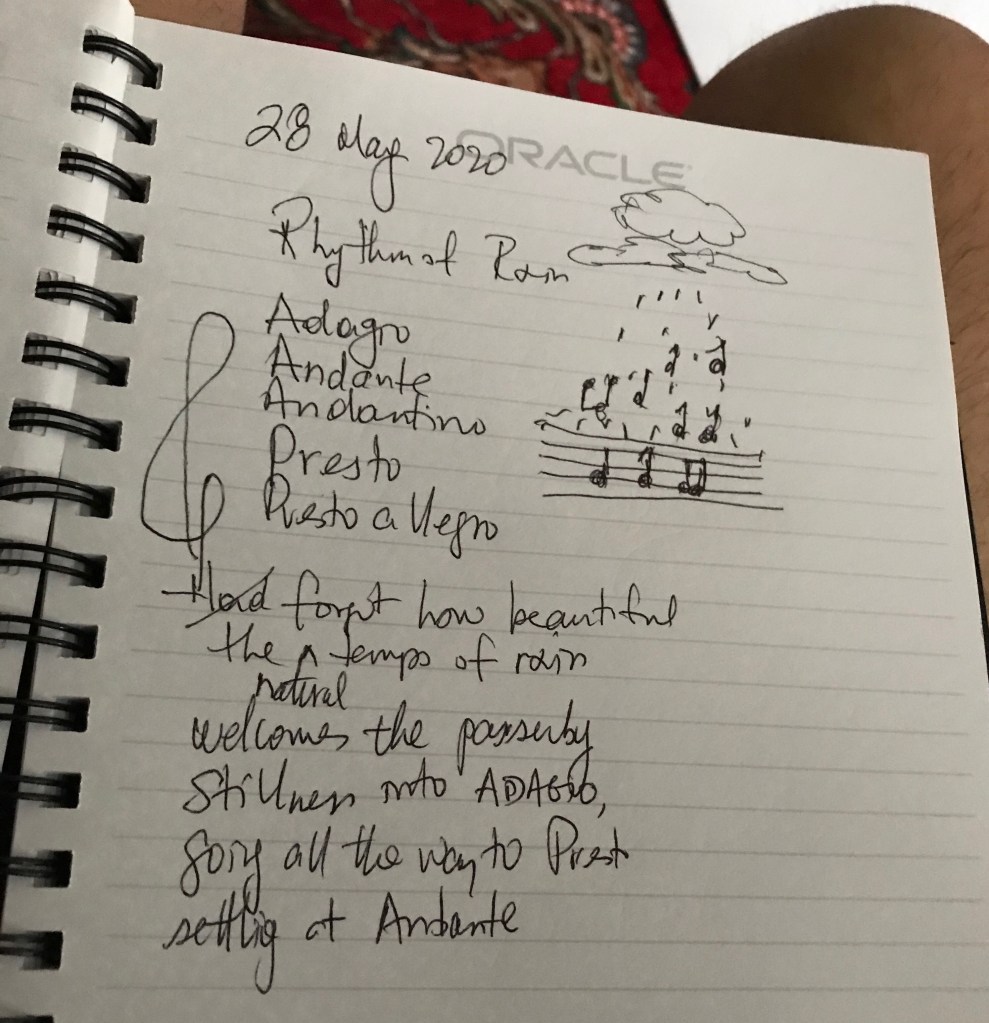 28 May 2020
ORACLE
Rhythm of Rain
Adagro
Andante
Andantino
Presto
Presto allegro
Had forgot how beautiful
the ^ tempo of rain
natural
welcomes the passerby
Stillness into ADAGIO,
going all the way to Prest
settlig at Andante